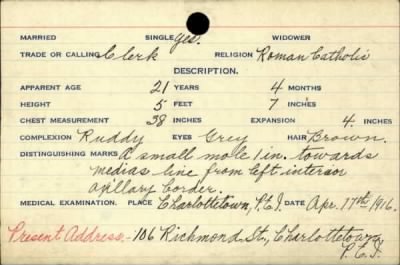 MARRIED SINGLE Yes. WIDOWER
TRADE OR CALLING Clerk RELIGION Roman Catholic
DESCRIPTION.
APPARENT AGE 21 YEARS 4 MONTHS
HEIGHT 5 FEET 7 INCHES
CHEST MEASUREMENT 38 INCHES EXPANSION 4 INCHES
COMPLEXION Ruddy EYES Grey HAIR Brown.
DISTINGUISHING MARKS A small mole 1 in. towards
medias line from left interior
axillary border.
MEDICAL EXAMINATION. PLACE Charlottetown, P.E.I. DATE Apr. 17th 1916.
Present Address - 106 Richmond St., Charlottetown
P.E.I.